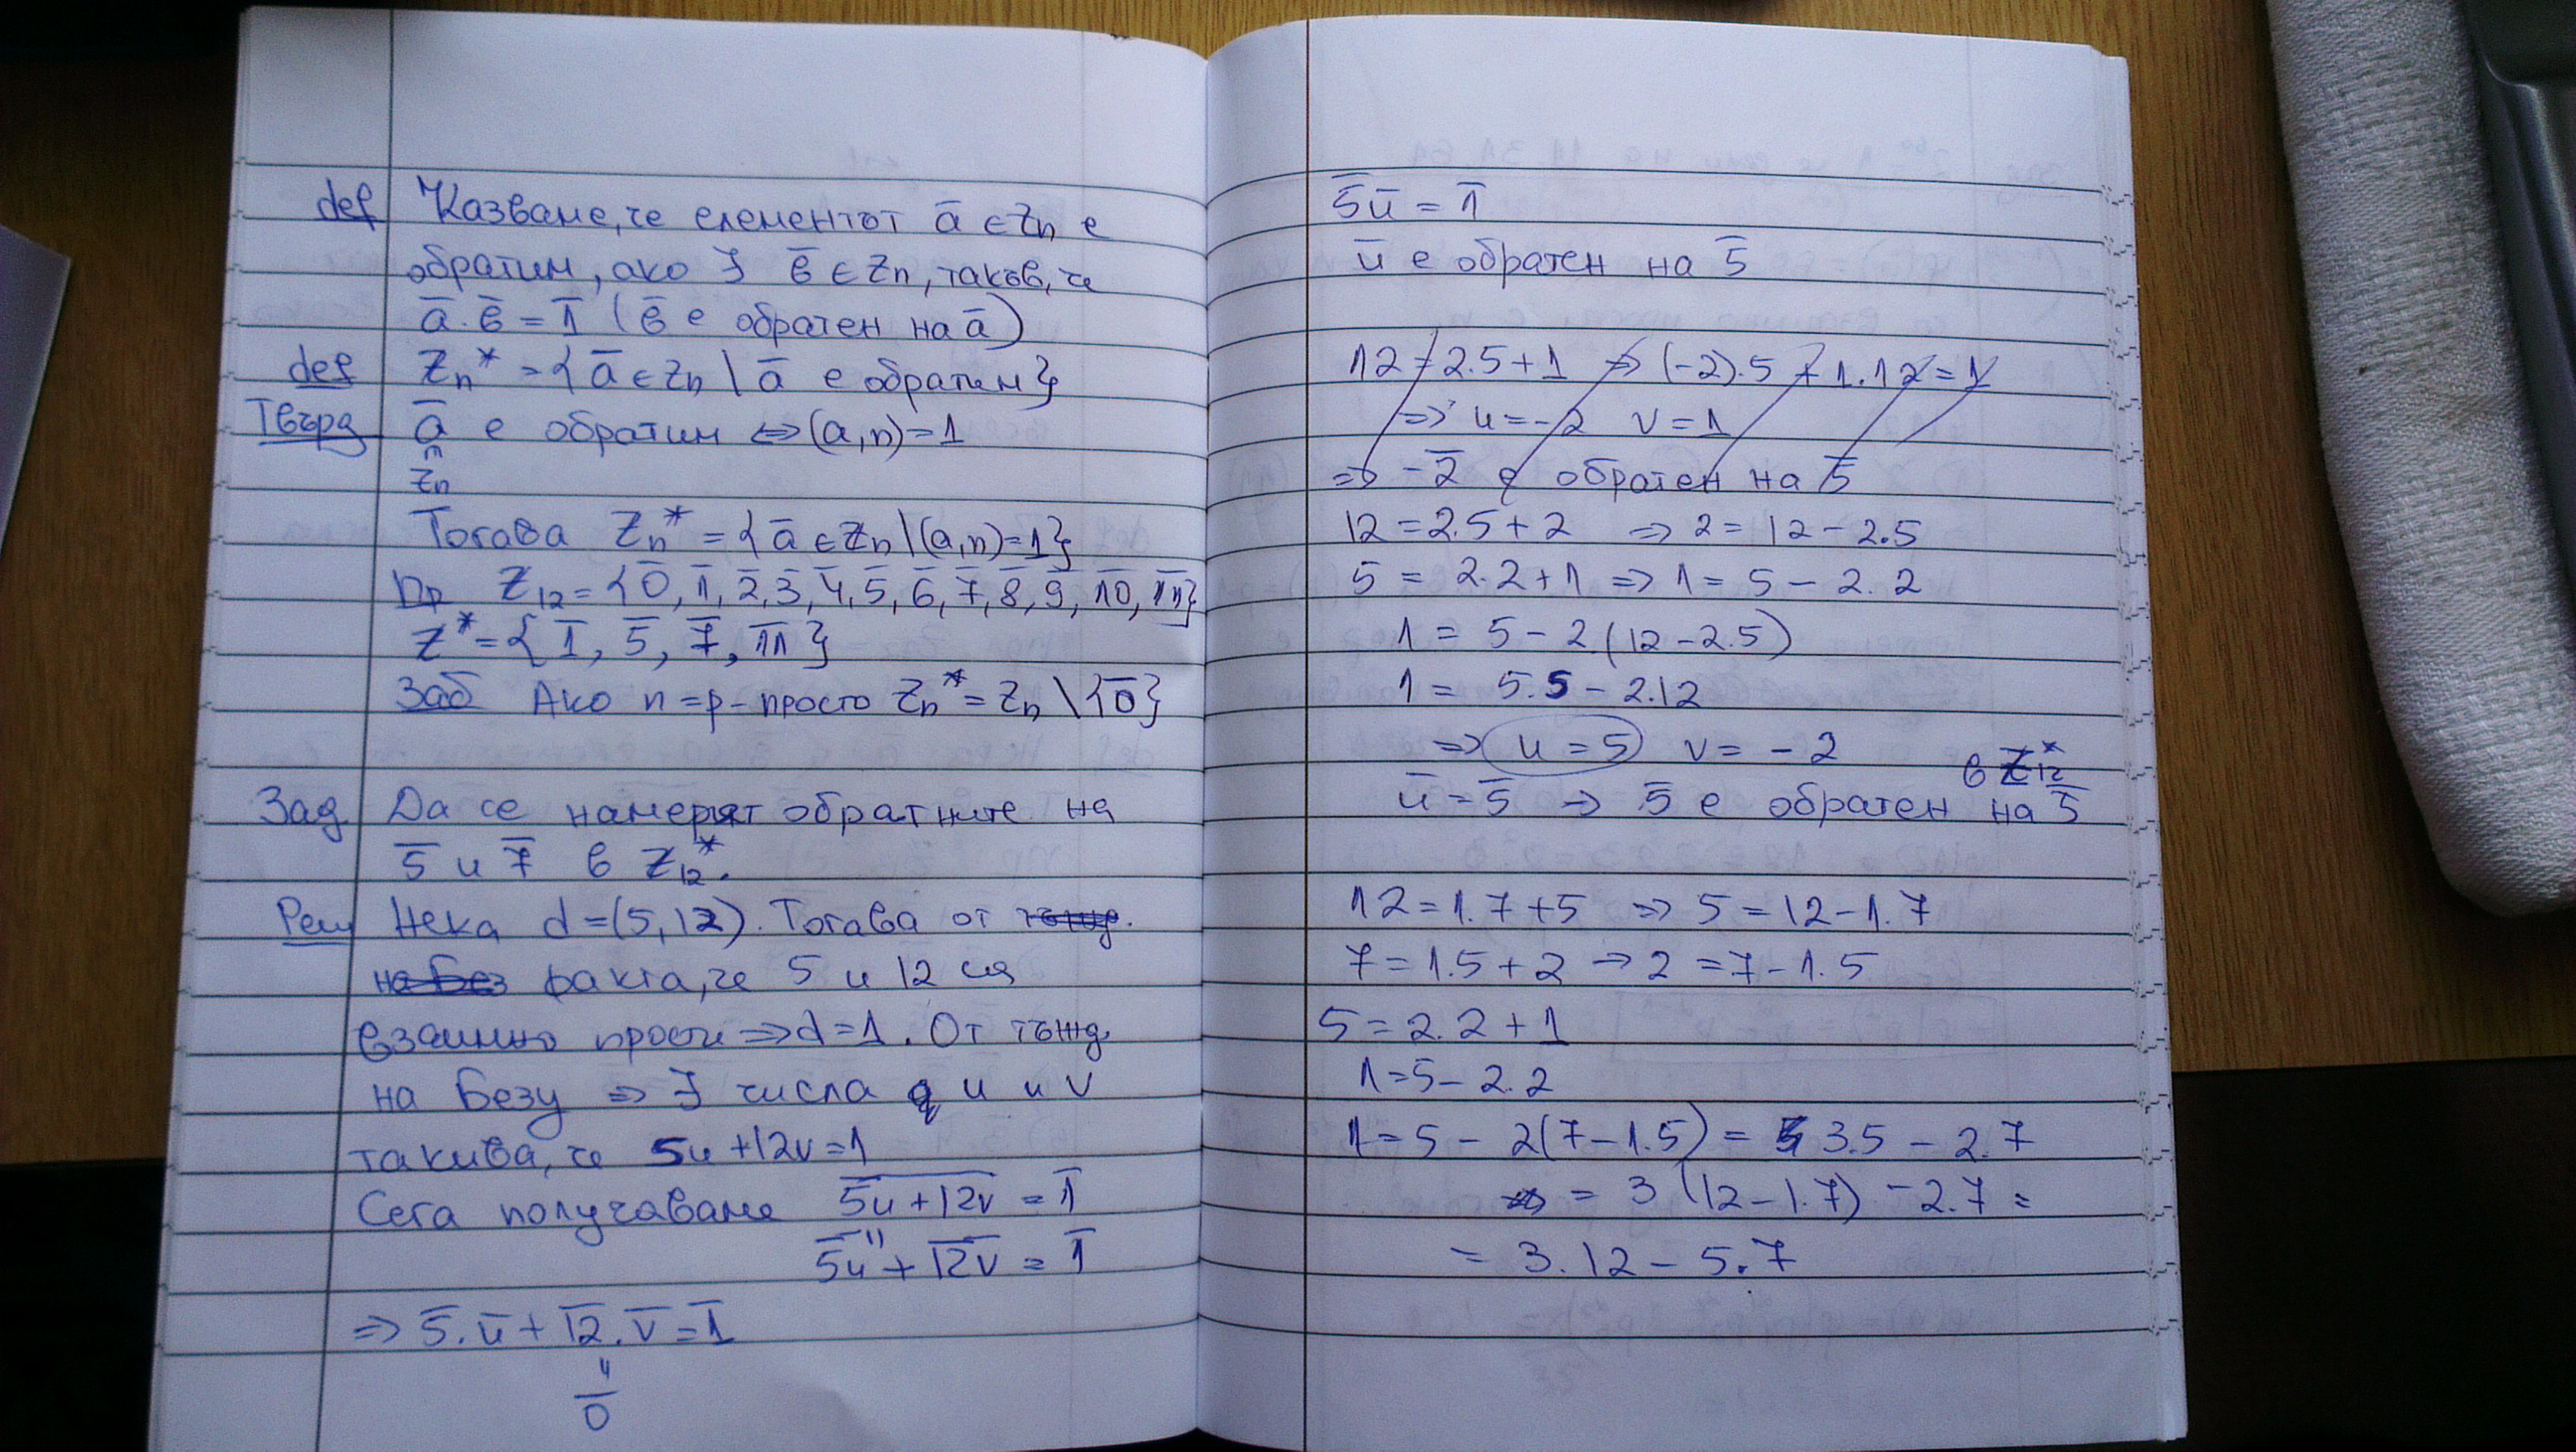 def Казваме, че елементът a̅ ∈ Zn е
обратим, ако ∃ b̅ ∈ Zn, такъв, че
a̅ . b̅ = 1̅ (b̅ е обратен на a̅)
def Zn* = {a̅ ∈ Zn \ a̅ е обратим}
Твърд a̅ е обратим ⇔ (a, n) = 1
∩
Zn
Тогава Zn* = {a̅ ∈ Zn \ (a, n) = 1}
Пр Z12 = {0̅, 1̅, 2̅, 3̅, 4̅, 5̅, 6̅, 7̅, 8̅, 9̅, 1̅0̅, 1̅1̅}
Z* = {1̅, 5̅, 7̅, 1̅1̅}
Заб Ако n = p - просто Zn* = Zn \ {0̅}
Зад Да се намерят обратните на
5̅ и 7̅ в Z12*.
Реш Нека d = (5, 12). Тогава от тъжд.
на Без факта, че 5 и 12 ся
взаимно прости ⇒ d = 1. От тъжд
на Безу ⇒ ∃ числа u и v
такива, че 5u + 12v = 1
Сега получаваме 5̅u̅ ̅+̅ ̅1̅2̅v̅ = 1̅
"
5̅u̅ + 1̅2̅v̅ = 1̅
⇒ 5̅ . u̅ + 1̅2̅ . v̅ = 1̅
"
0̅
5̅u̅ = 1̅
u̅ е обратен на 5̅
12 = 2.5 + 1 ⇒ (-2).5 + 1.12 = 1
⇒ u = -2 v = 1
⇒ -2̅ е обратен на 5̅
12 = 2.5 + 2 ⇒ 2 = 12 - 2.5
5 = 2.2 + 1 ⇒ 1 = 5 - 2.2
1 = 5 - 2.(12 - 2.5)
1 = 5.5 - 2.12
⇒ u = 5 v = -2
в Z12*
u̅ = 5̅ ⇒ 5̅ е обратен на 5̅
12 = 1.7 + 5 ⇒ 5 = 12 - 1.7
7 = 1.5 + 2 ⇒ 2 = 7 - 1.5
5 = 2.2 + 1
1 = 5 - 2.2
1 = 5 - 2(7 - 1.5) = 3.5 - 2.7
= 3(12 - 1.7) - 2.7 =
= 3.12 - 5.7